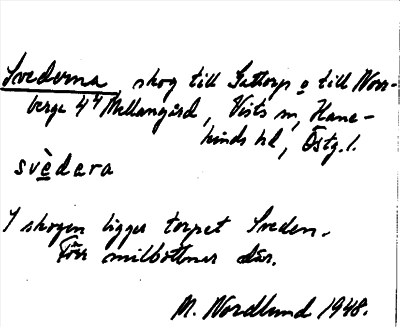 Svederna skog till Gattorp o till Norr-
berga 4:4 Mellangård, Vists sn, Hane-
kinds hd, Östg. l.
svèdara
I skogen ligger torpet Sveden.
Förr milbottnar där.
M. Nordlund 1948.